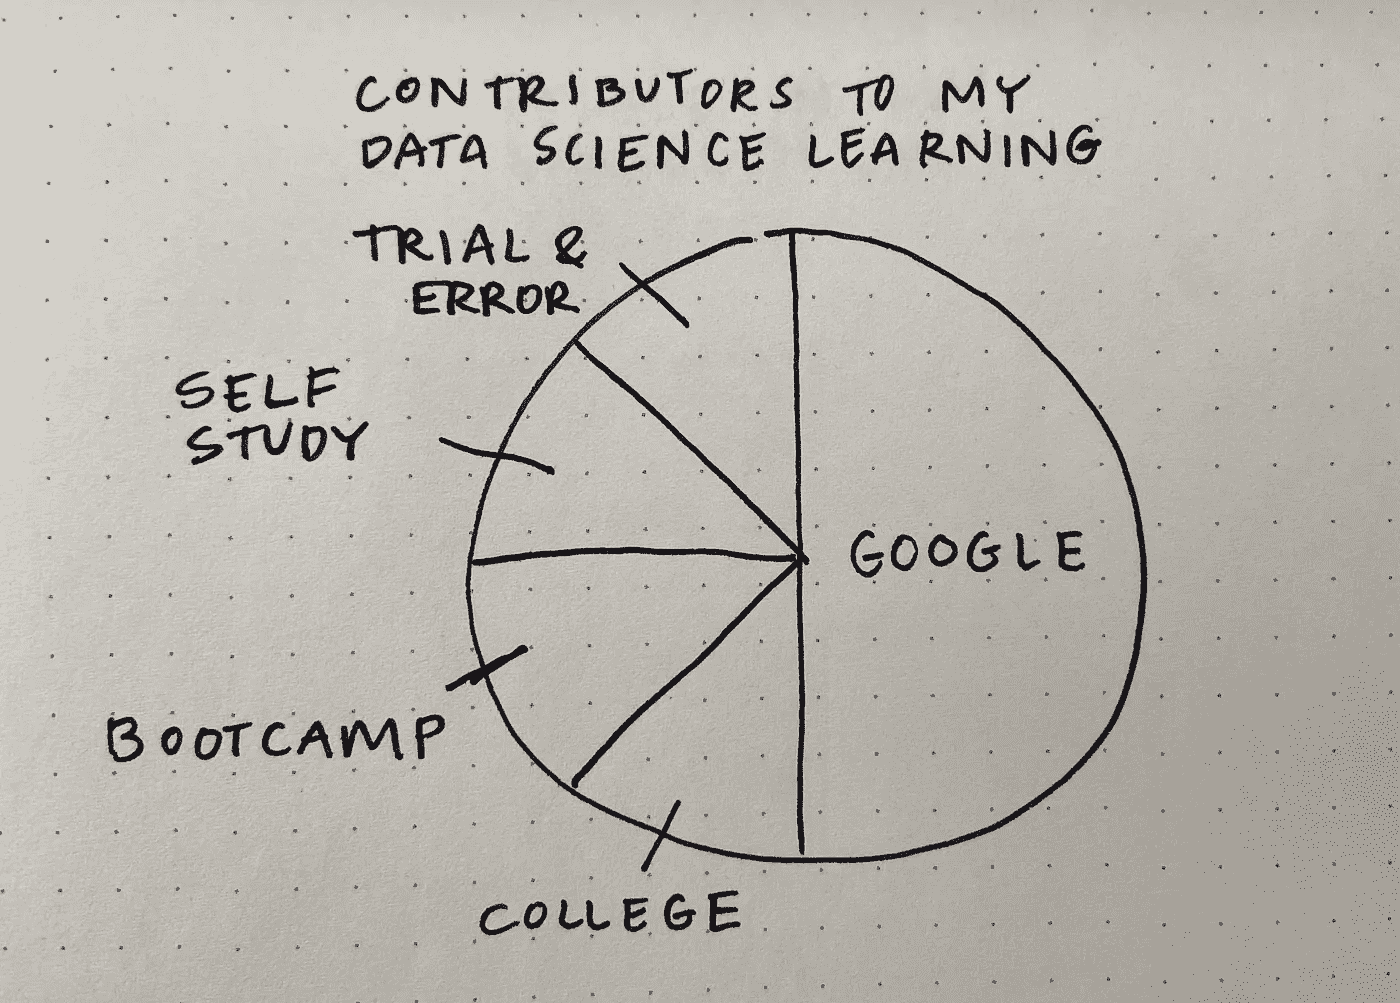 CONTRIBUTORS TO MY
DATA SCIENCE LEARNING
TRIAL &
ERROR
SELF
STUDY
GOOGLE
BOOTCAMP
COLLEGE